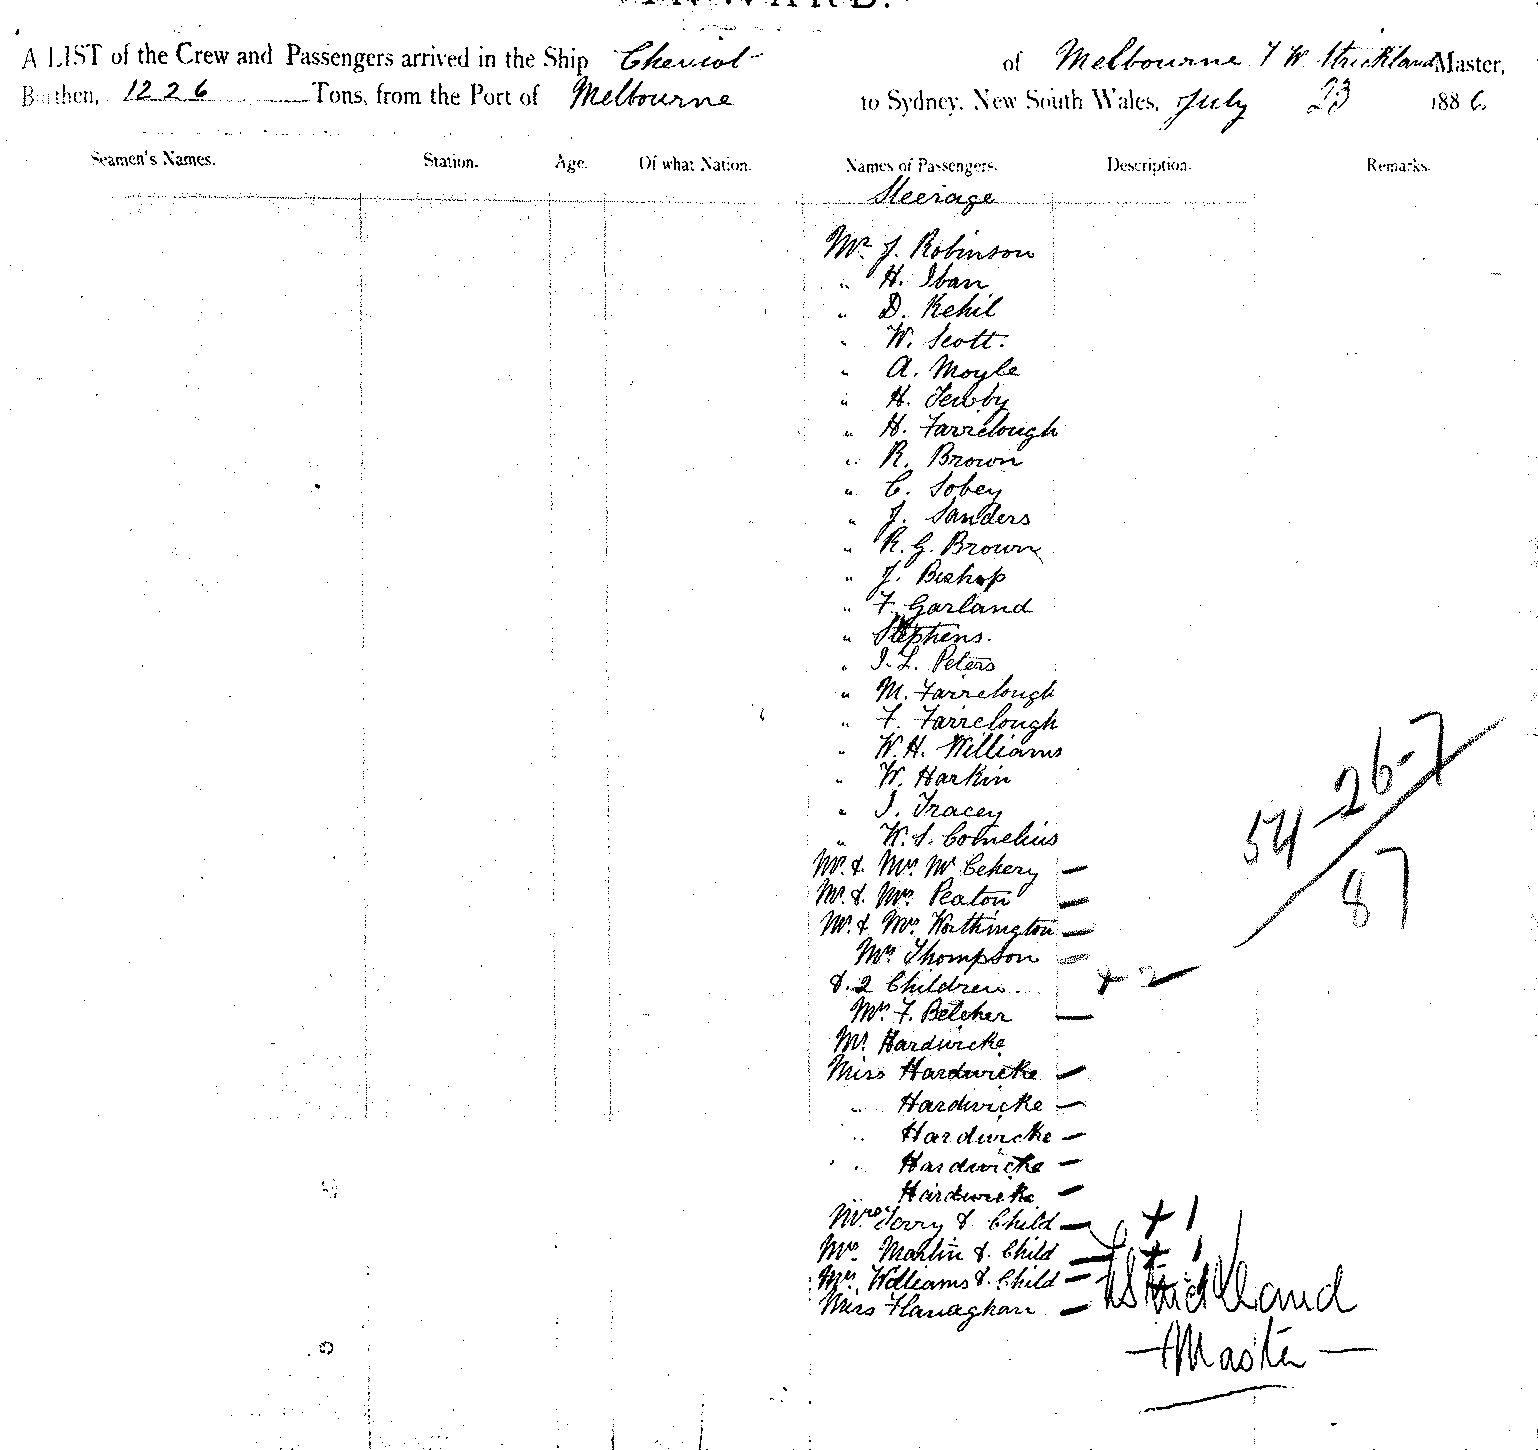 INWARD.
A LIST of the Crew and Passengers arrived in the Ship Cheviot of Melbourne T W Strickland Master,
Burthen, 1226 Tons, from the Port of Melbourne to Sydney, New South Wales, July 23 1886.
Seamen's Names. Station. Age. Of what Nation. Names of Passengers. Description. Remarks.
Steerage
Mr. J. Robinson
" H. Iban
" D. Kehil
" W. Scott.
" A. Moyle
" H. Tewby
" H. Farrelough
" R. Brown
" C. Sobey
" J. Sanders
" R. G. Brown
" J. Bishop
" F. Garland
" Stephens.
" J. L. Peters
" M. Farrelough
" F. Farrelough
" W. H. Williams
" W. Harkin
" J. Tracey
" W. S. Cornelius
Mr. & Mrs. Mc Cekery
Mr. & Mrs. Peaton
Mr. & Mrs. Worthington
Mrs. Thompson
& 2 Children + 2
Mrs. F. Belcher
Mr. Hardwicke
Miss Hardwicke
" Hardwicke
" Hardwicke
" Hardwicke
" Hardwicke
Mrs. Torry & Child + 1
Mrs. Martin & Child + 1
Mrs. Williams & Child
Miss Flanaghan
54 26-7
87
Strickland
Master